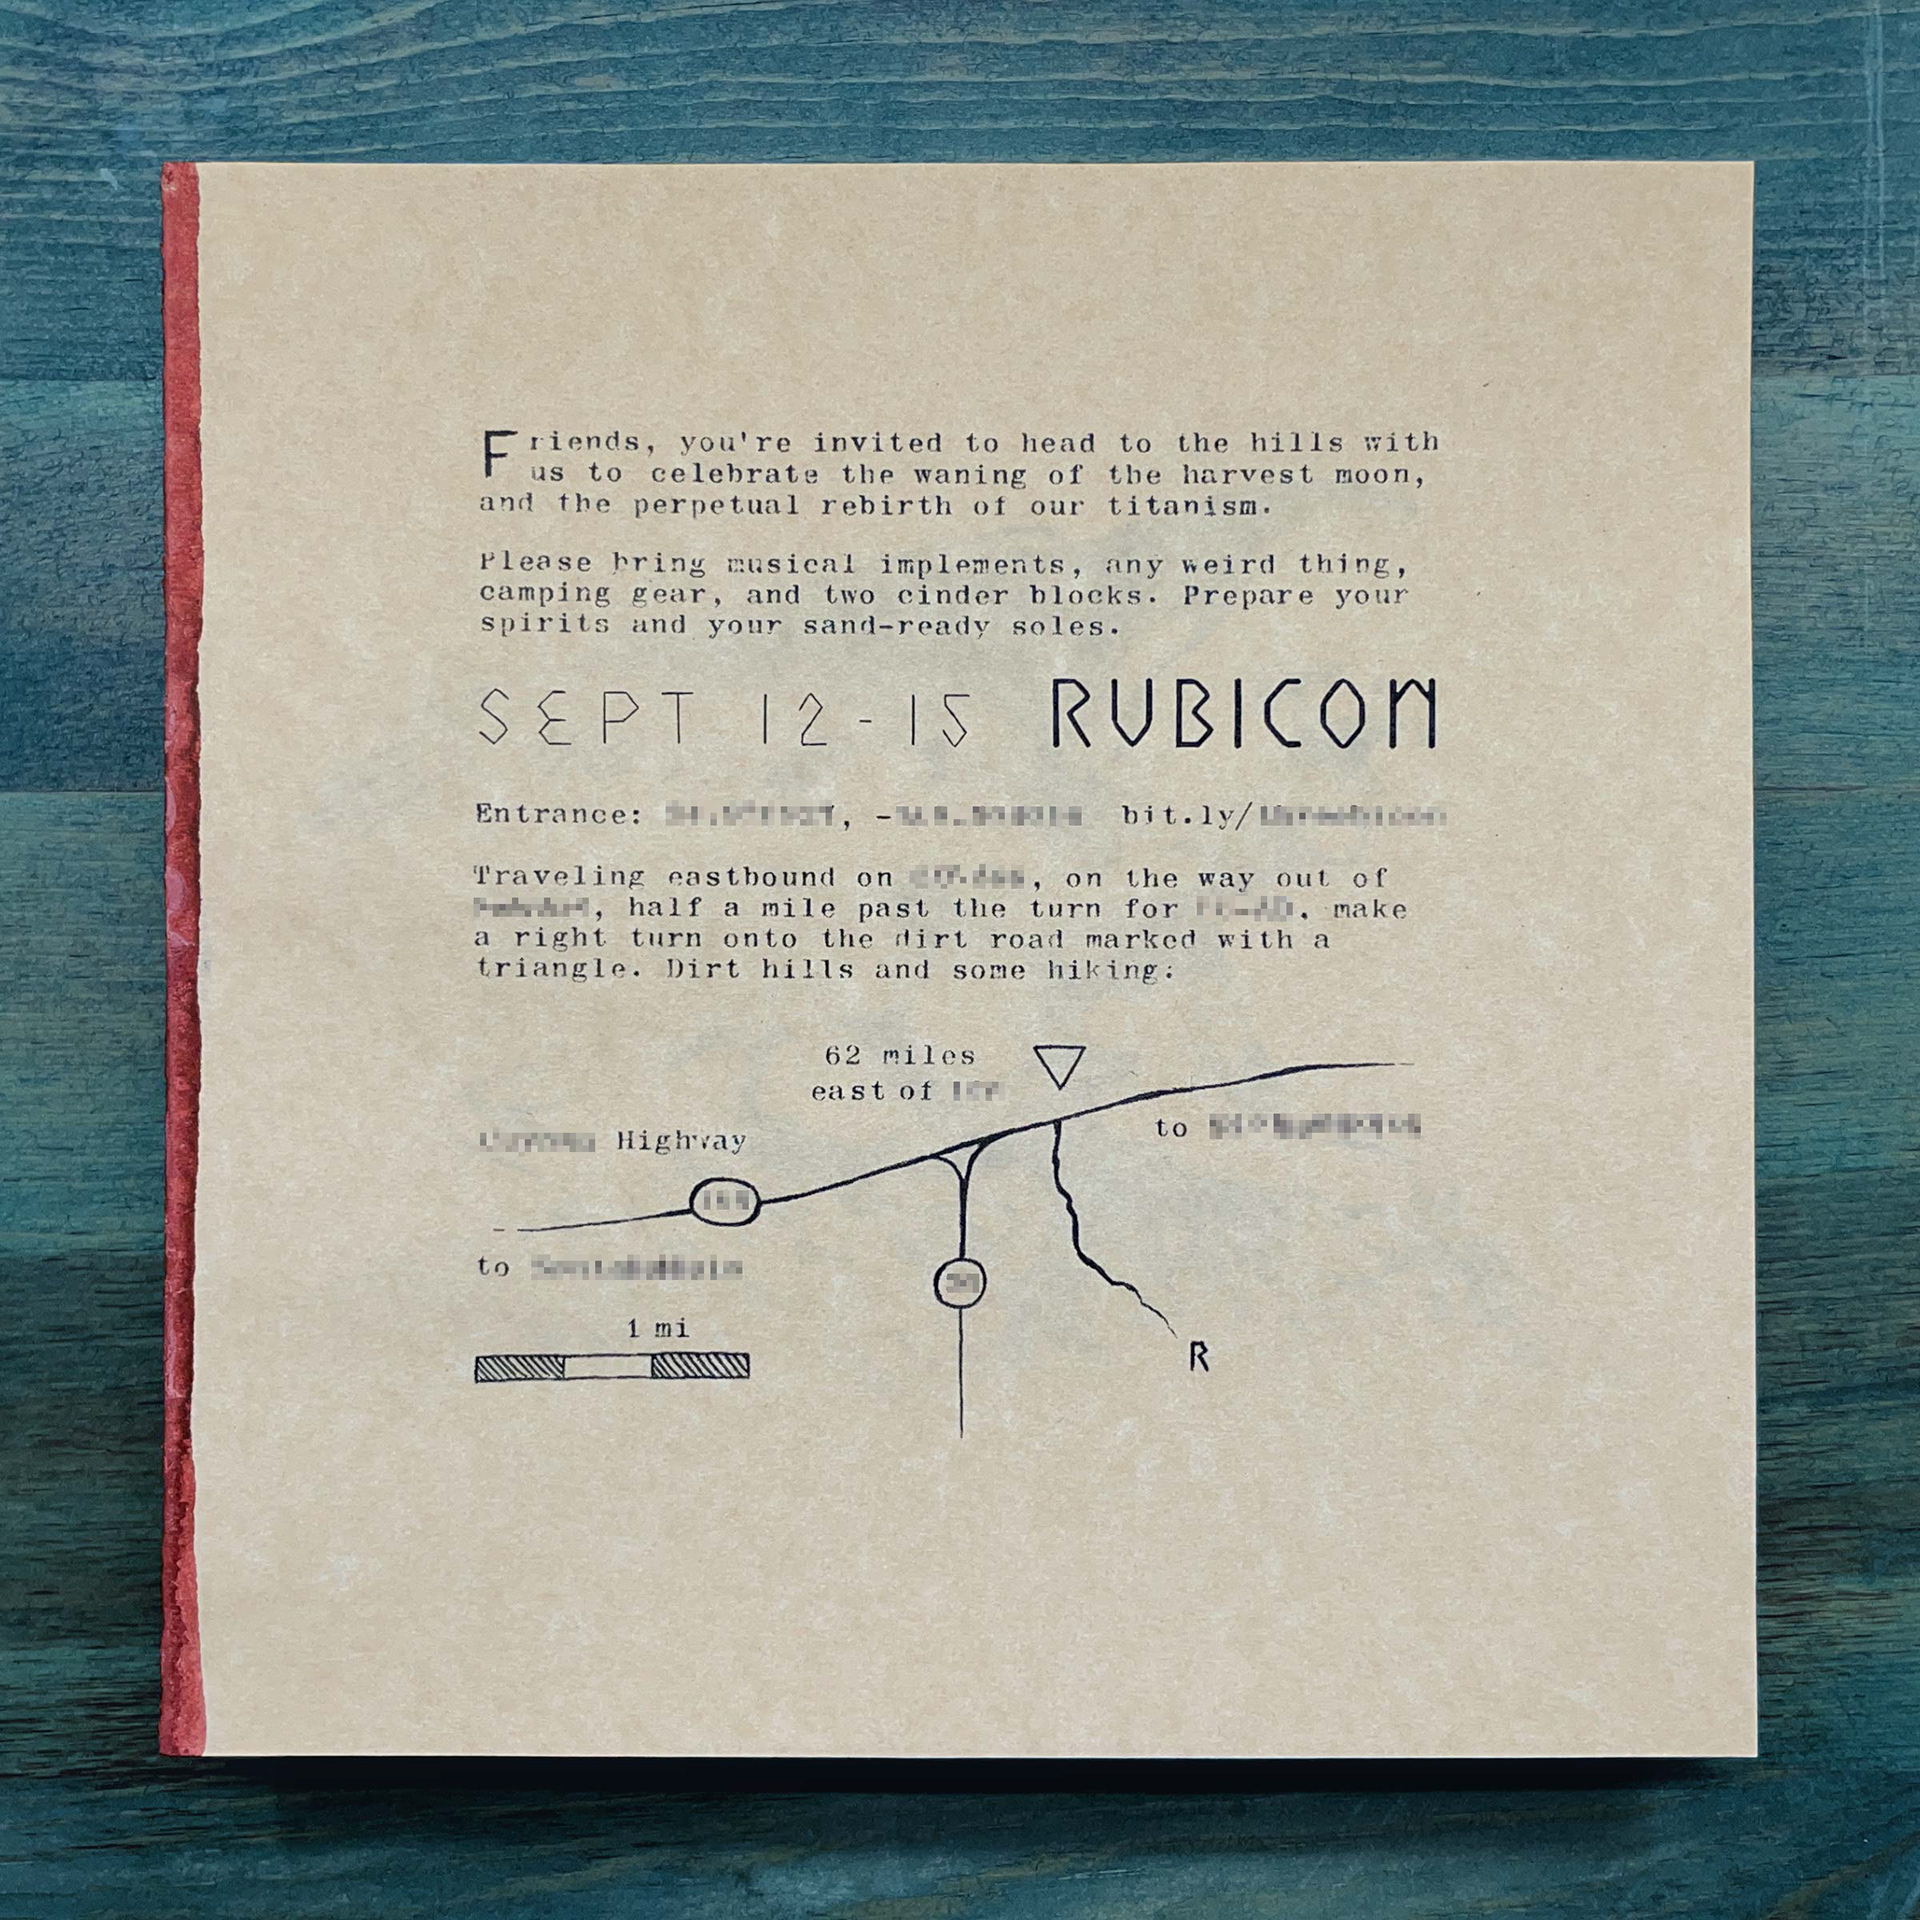 Friends, you're invited to head to the hills with
us to celebrate the waning of the harvest moon,
and the perpetual rebirth of our titanism.
Please bring musical implements, any weird thing,
camping gear, and two cinder blocks. Prepare your
spirits and your sand-ready soles.
SEPT 12-15 RUBICON
Entrance: , - bit.ly/
Traveling eastbound on , on the way out of
, half a mile past the turn for , make
a right turn onto the dirt road marked with a
triangle. Dirt hills and some hiking:
62 miles
east of
to
Highway
to
1 mi
R